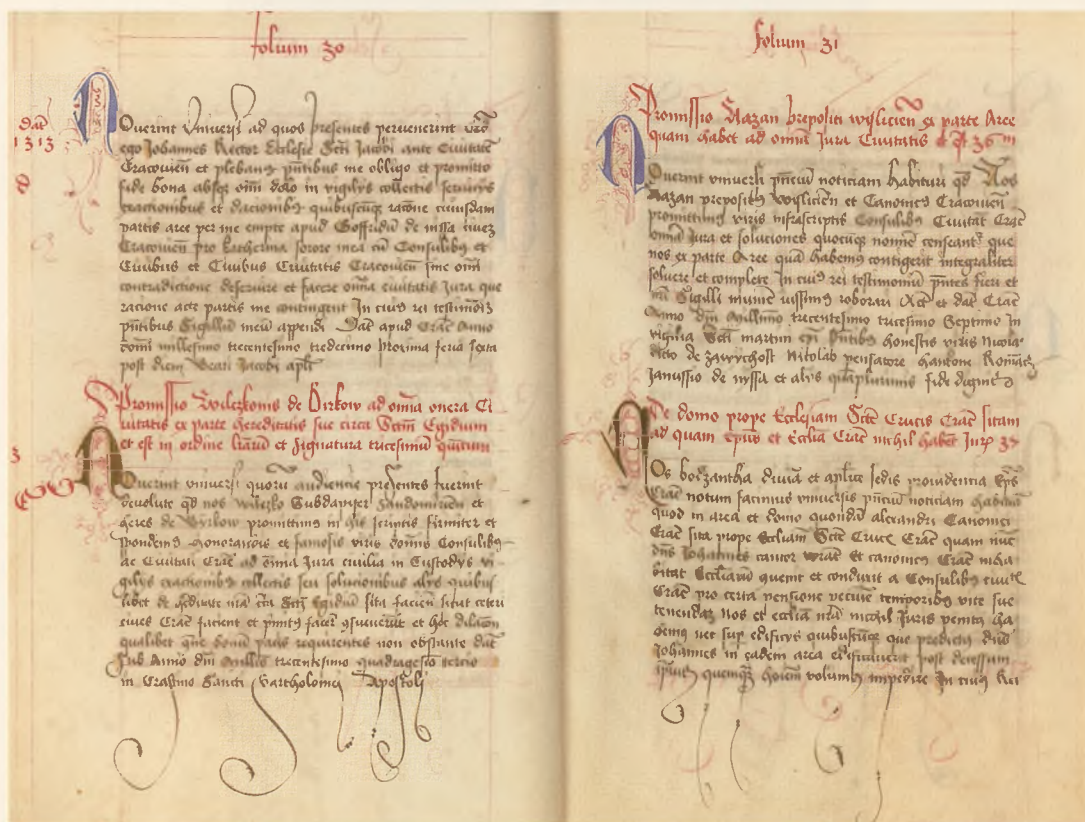 folium 30
dat
1313
Noverint Universi ad quos presentes pervenerint
ego Johannes Rector Ecclesie Scti Jacobi ante Civitatem
Cracovien et plebanus pntibus me obligo et promitto
fide bona absque omni dolo in vigilys collectis servicys
exactionibus et dacionibus quibuscunque racione cuiusdam
partis aree per me empte apud Goffridum de nissa civem
Cracovien pro katherina sorore mea cum Consulibus et
Civibus et Civibus Civitatis Cracovien sine omni
contradictione deservire et facere omnia civitatis Jura que
racione partis me contingent In cuius rei testimonium
pntibus Sigillum meum appendi Dat apud Crac Anno
domini millesimo trecentesimo tredecimo proxima feria sexta
post diem Beati Jacobi apli
Promissio Wilczkonis de Birkow ad omnia onera Ci
vitatis ex parte hereditatis sue circa Sctum Egidium
et est in ordine lrarum et signatura tricesimum quintum
Noverint universi quorum audiencie presentes fuerint
devolute quod nos Wilczko Subdapifer Sandomirien et
heres de promittimus in his scriptis firmiter et
spondemus honorandis et famosis viris dominis Consulibus
ac Civitati Crac ad omnia Jura civilia in Custodys vi
gilys exactionibus collectis seu solucionibus alys quibus
libet de hereditate nra circa Sctum Egidium sita facien sicut ceteri
cives Crac facient et facere consueverunt et hoc
qualibet non obstante dat
Sub Anno dni Millesimo trecentesimo quadragesimo tercio
in Crastino Sancti Bartholomei Apostoli
folium 31
Promissio Kazan prepositi wislicien ex parte Aree
quam habet ad omnia Jura Civitatis 36
Noverint universi pncium noticiam habituri quod Nos
Kazan prepositus wislicien et Canonicus Cracovien
promittimus viris infrascriptis Consulibus Civitatis Crac
omnia Jura et soluciones quocunque nomine censeantur que
nos ex parte Aree quam habemus contigerit integraliter
solvere et complete In cuius rei testimonium pntes fieri et
nri Sigilli munimine iussimus roborari Act et dat Crac
Anno dni Millesimo trecentesimo tricesimo Septimo In
vigilia Scti martini pntibus honestis viris Nicolao
dicto de zawychost Nicolao pensatore hankone
Janussio de nyssa et alys quampluribus fide dignis
De domo prope Ecclesiam Scte Crucis Crac sitam
ad quam Epus et Ecclia Crac nichil habent Juris 37
Nos bodzantha divina et aplice sedis providencia Eps
Crac notum facimus universis pncium noticiam habituris
quod in area et domo quondam alexandri Canonici
Crac sita prope Eccliam Scte Crucis Crac quam nunc
dns Johannes cantor wrat et canonicus Crac inha
bitat quemit et conduxit a Consulibus civit
Crac pro certa pensione pecunie temporibus vite sue
tenendam nos et ecclia nra nichil Juris penitus ha
bemus nec super edificys quibuscunque que predictus dns
Johannes in eadem area edificaverit post decessum
ipsius quemquam hoiem volumus impedire In cuius Rei